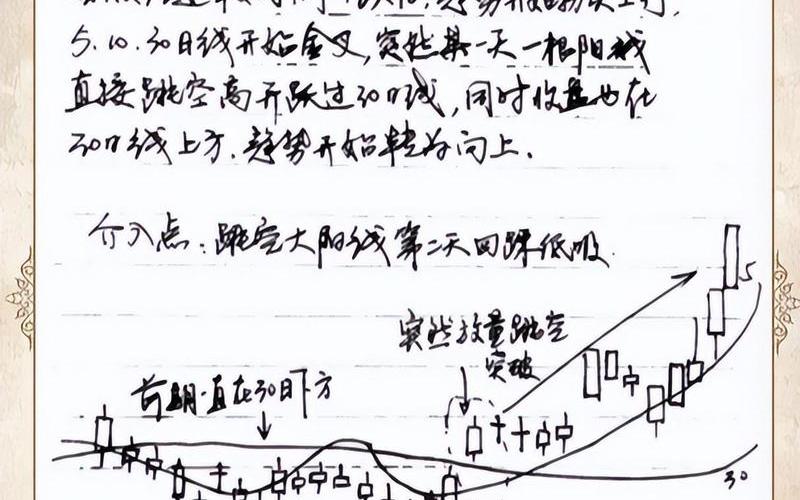 5.10.30日线开始金叉,突然某一天一根阳线
直接跳空高开跃过30日线,同时收盘也在
30日线上方.趋势开始转为向上.
介入点:跳空大阳线第二天回踩低吸.
突然放量跳空
突破
前期一直在30日下方
5
30